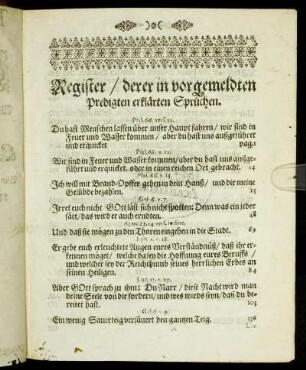 Register / derer in vorgemeldten
Predigten erklärten Sprüchen.
Du hast Menschen lassen über unser Haupt fahren / wir sind in
Feuer und Wasser kommen / aber du hast uns außgeführet
und erquicket pag. 1
Wir sind in Feuer und Wasser kommen / aber du hast uns außge-
führet und erquicket. oder in einen reichen Ort gebracht. 14
Ich will mit Brand-Opffer gehen in dein Hauß / und dir meine
Gelübde bezahlen. 25
Irret euch nicht GOtt läst sich nicht spotten: Denn was ein jeder
säet / das wird er auch erndten. 48
Und daß sie mögen zu den Thoren eingehen in die Stadt. 69
Er gebe euch erleuchtete Augen eures Verständnüß / daß ihr er-
kennen möget / welche da sey die Hoffnung eures Beruffs /
und welcher sey der Reichthumb seines herrlichen Erbes an
seinen Heiligen. 84
Aber GOtt sprach zu ihm: Du Narr / diese Nacht wird man
deine Seele von dir fordern / und wes wirds seyn / daß du be-
reitet hast.
Ein wenig Saurteig versäuert den gantzen Teig. 136